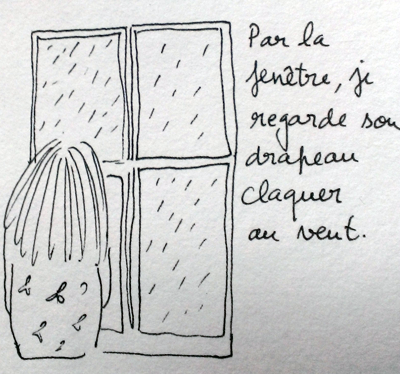 Par la
fenêtre, je
regarde son
drapeau
claquer
au vent.